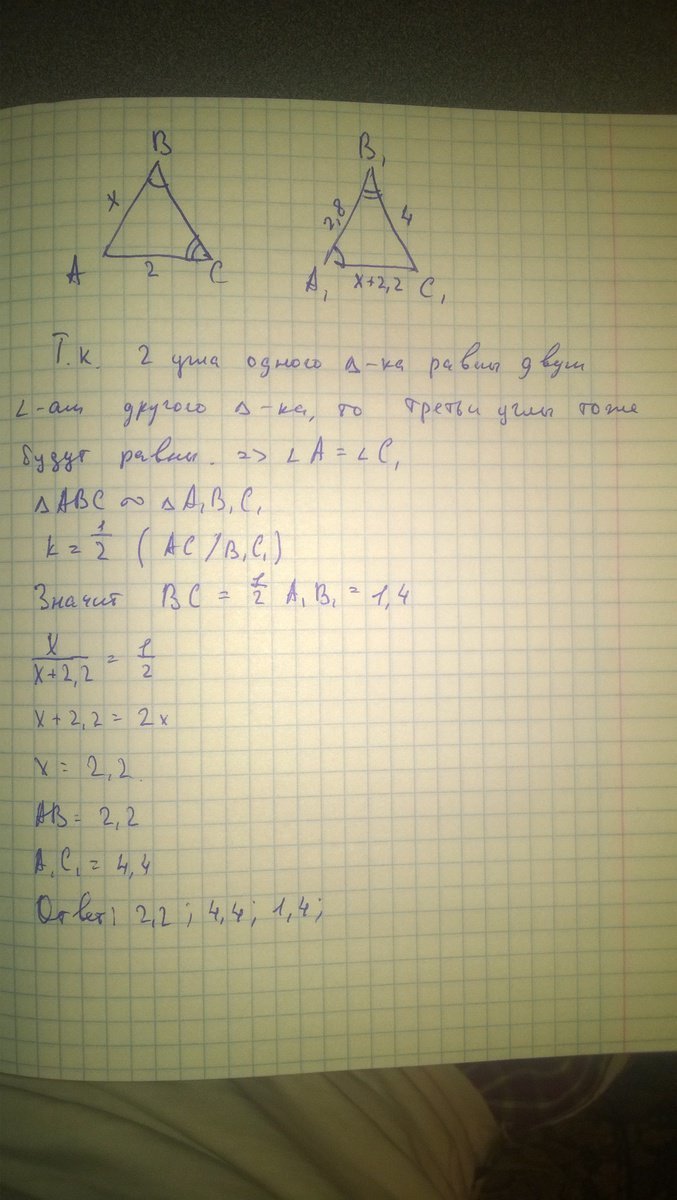 B
B₁
x
2,8
4
A
2
C
A₁
x+2,2
C₁
Т.к. 2 угла одного Δ-ка равны двум
∠-ам другого Δ-ка, то третьи углы тоже
будут равны. => ∠A = ∠C₁
ΔABC ∾ ΔA₁B₁C₁
k = 1/2 (AC/B₁C₁)
Значит BC = 1/2 A₁B₁ = 1,4
x/(x+2,2) = 1/2
x+2,2 = 2x
x = 2,2.
AB = 2,2
A₁C₁ = 4,4
Ответ: 2,2; 4,4; 1,4;